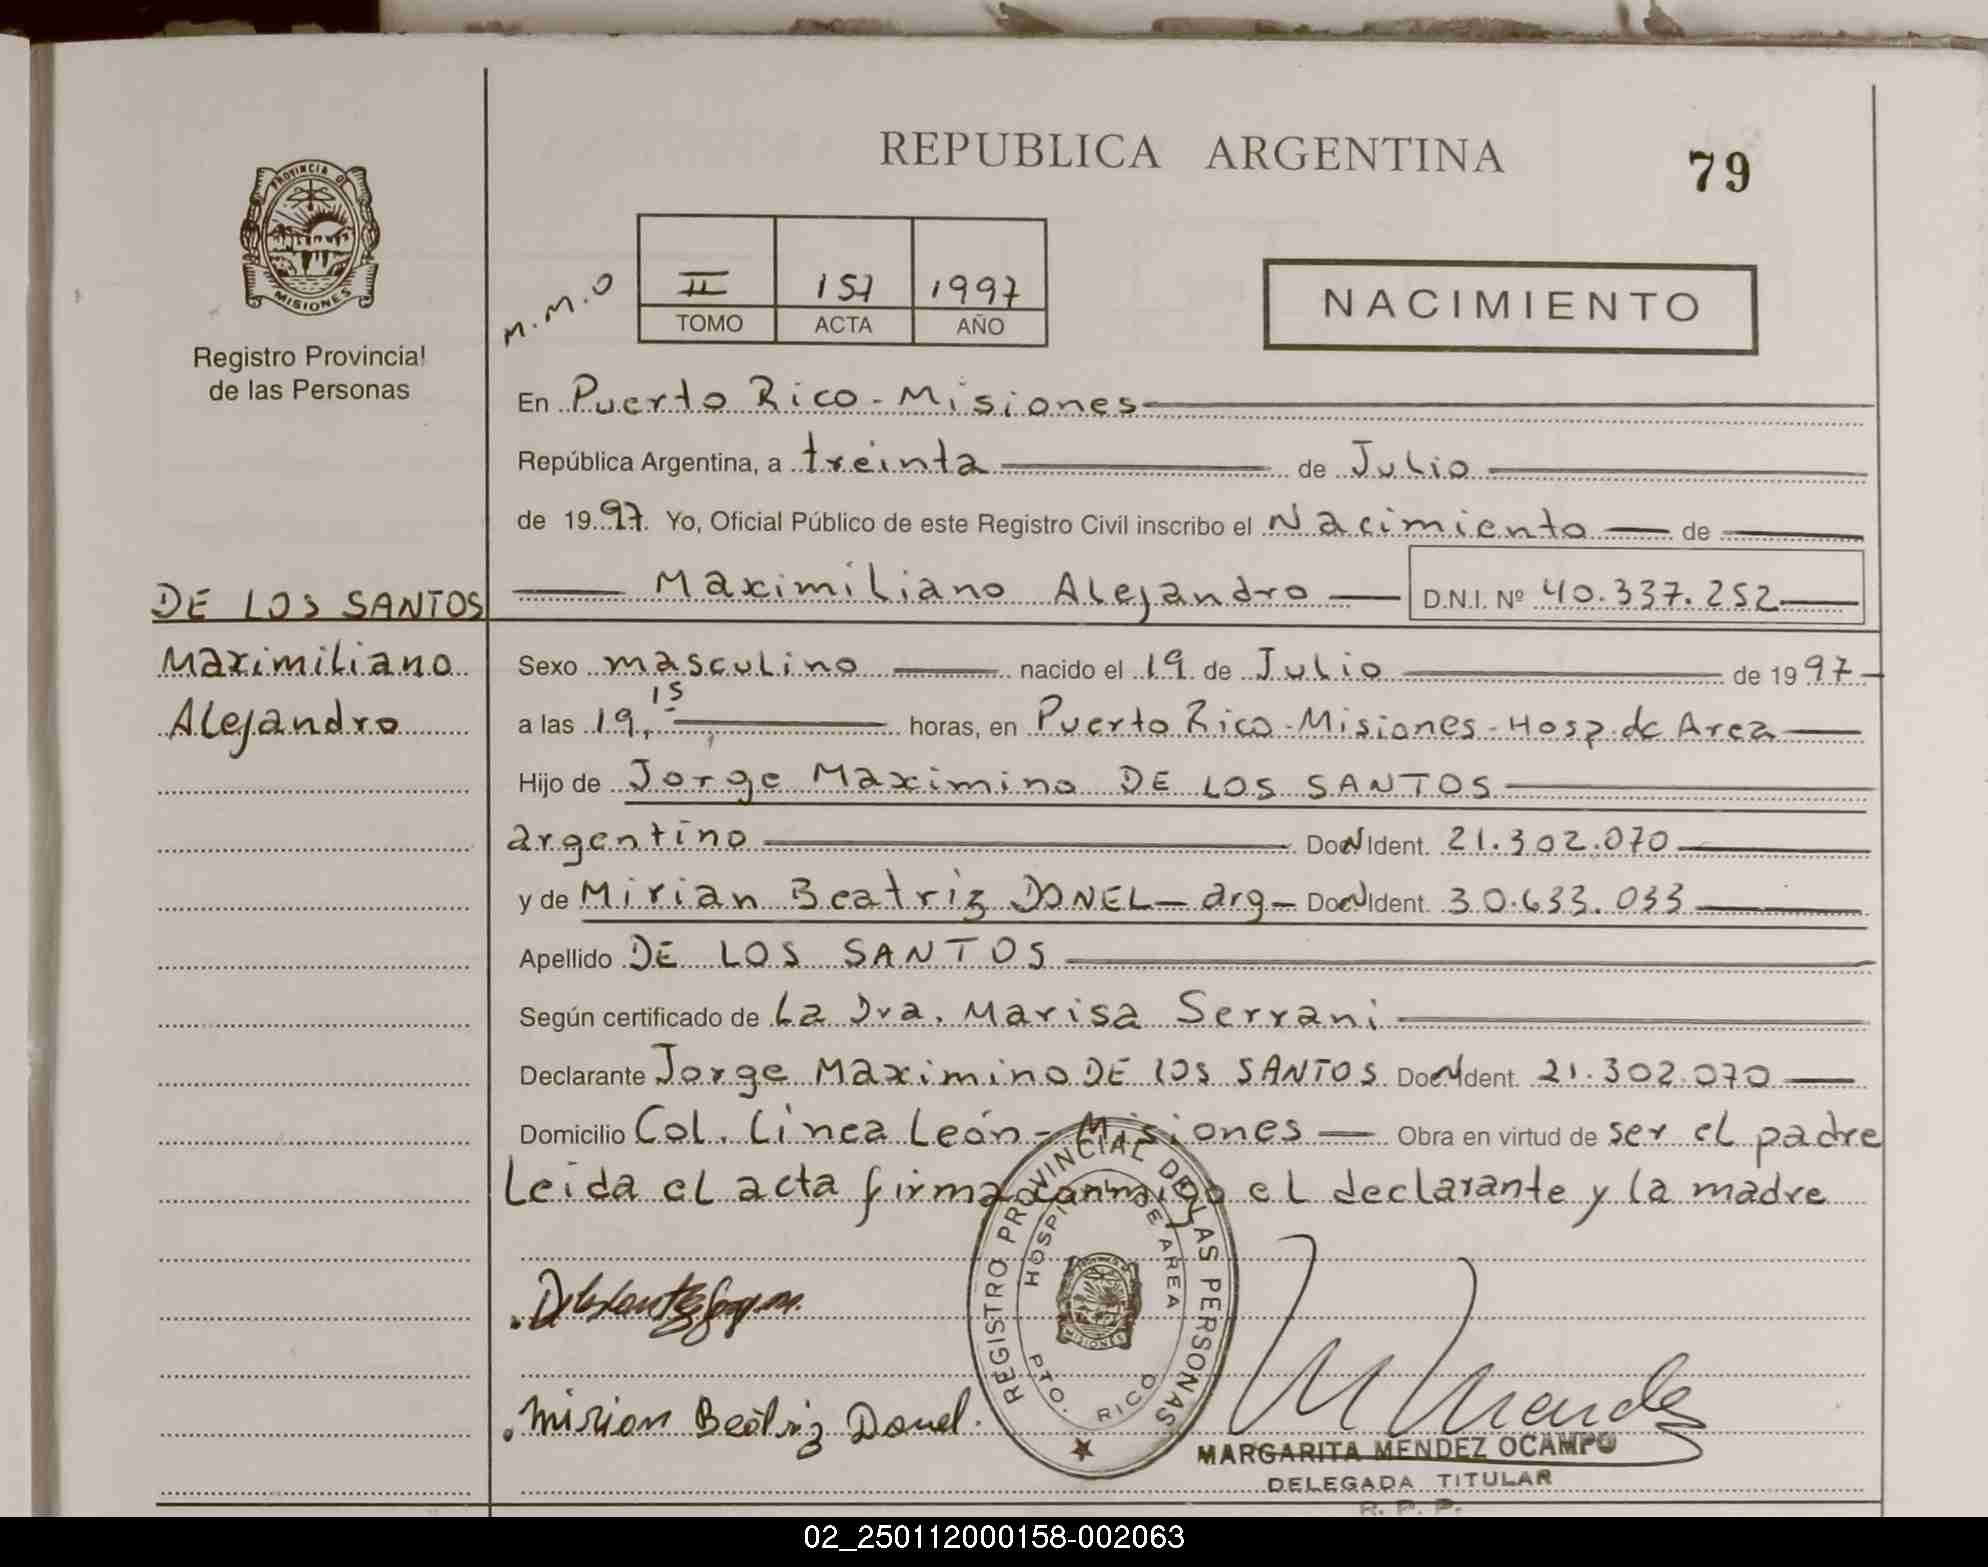 REPUBLICA ARGENTINA
79
PROVINCIA DE
MISIONES
Registro Provincial
de las Personas
M.M.O
II 157 1997
TOMO ACTA AÑO
NACIMIENTO
En Puerto Rico - Misiones
República Argentina, a treinta de Julio
de 1997. Yo, Oficial Público de este Registro Civil inscribo el Nacimiento de
DE LOS SANTOS
Maximiliano
Alejandro
Maximiliano Alejandro D.N.I. Nº 40.337.252
Sexo masculino nacido el 19 de Julio de 1997
a las 19,15 horas, en Puerto Rico - Misiones - Hosp. de Area
Hijo de Jorge Maximino DE LOS SANTOS
argentino Doc N Ident. 21.302.070
y de Mirian Beatriz DONEL - arg - Doc N Ident. 30.633.033
Apellido DE LOS SANTOS
Según certificado de La Dra. Marisa Serrani
Declarante Jorge Maximino DE LOS SANTOS Doc N Ident. 21.302.070
Domicilio Col. Linea León - Misiones Obra en virtud de ser el padre
Leida el acta firma conmigo el declarante y la madre
REGISTRO PROVINCIAL DE LAS PERSONAS
HOSPITAL DE AREA
MISIONES
PTO. RICO
Mirian Beatriz Donel.
M Mendez
MARGARITA MENDEZ OCAMPO
DELEGADA TITULAR
R. P. P.
02_250112000158-002063